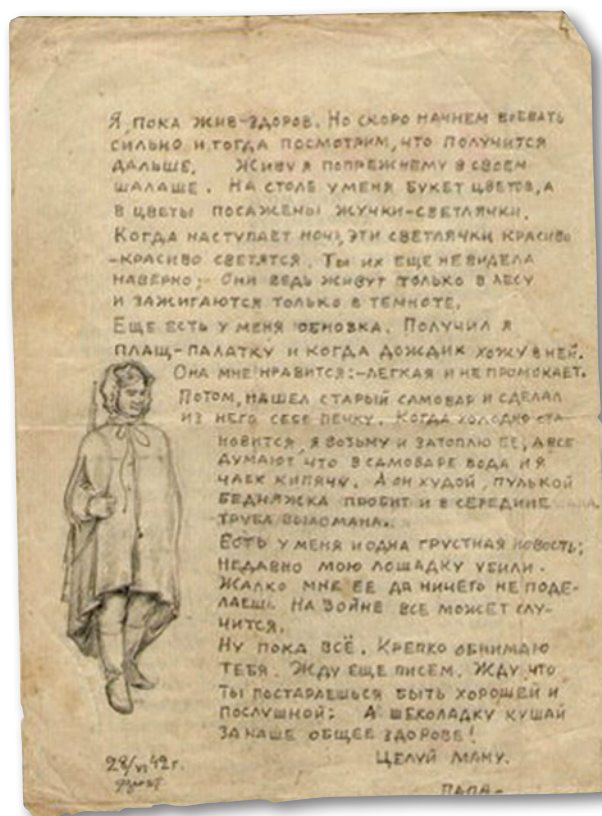 Я, ПОКА ЖИВ-ЗДОРОВ. НО СКОРО НАЧНЕМ ВОЕВАТЬ
СИЛЬНО И ТОГДА ПОСМОТРИМ, ЧТО ПОЛУЧИТСЯ
ДАЛЬШЕ. ЖИВУ Я ПОПРЕЖНЕМУ В СВОЕМ
ШАЛАШЕ. НА СТОЛЕ У МЕНЯ БУКЕТ ЦВЕТОВ, А
В ЦВЕТЫ ПОСАЖЕНЫ ЖУЧКИ-СВЕТЛЯЧКИ.
КОГДА НАСТУПАЕТ НОЧЬ, ЭТИ СВЕТЛЯЧКИ КРАСИВО
-КРАСИВО СВЕТЯТСЯ. ТЫ ИХ ЕЩЕ НЕ ВИДЕЛА
НАВЕРНО; ОНИ ВЕДЬ ЖИВУТ ТОЛЬКО В ЛЕСУ
И ЗАЖИГАЮТСЯ ТОЛЬКО В ТЕМНОТЕ.
ЕЩЕ ЕСТЬ У МЕНЯ ОБНОВКА. ПОЛУЧИЛ Я
ПЛАЩ-ПАЛАТКУ И КОГДА ДОЖДИК ХОЖУ В НЕЙ.
ОНА МНЕ НРАВИТСЯ:-ЛЕГКАЯ И НЕ ПРОМОКАЕТ.
ПОТОМ, НАШЕЛ СТАРЫЙ САМОВАР И СДЕЛАЛ
ИЗ НЕГО СЕБЕ ПЕЧКУ. КОГДА ХОЛОДНО СТА-
НОВИТСЯ, Я ВОЗЬМУ И ЗАТОПЛЮ ЕЕ, А ВСЕ
ДУМАЮТ ЧТО В САМОВАРЕ ВОДА И Я
ЧАЕК КИПЯЧУ. А ОН ХУДОЙ, ПУЛЬКОЙ
БЕДНЯЖКА ПРОБИТ И В СЕРЕДИНЕ
ТРУБА ВЫЛОМАНА.
ЕСТЬ У МЕНЯ И ОДНА ГРУСТНАЯ НОВОСТЬ;
НЕДАВНО МОЮ ЛОШАДКУ УБИЛИ.
ЖАЛКО МНЕ ЕЕ ДА НИЧЕГО НЕ ПОДЕ-
ЛАЕШЬ. НА ВОЙНЕ ВСЕ МОЖЕТ СЛУ-
ЧИТСЯ.
НУ ПОКА ВСЁ. КРЕПКО ОБНИМАЮ
ТЕБЯ. ЖДУ ЕЩЕ ПИСЕМ. ЖДУ ЧТО
ТЫ ПОСТАРАЕШЬСЯ БЫТЬ ХОРОШЕЙ И
ПОСЛУШНОЙ; А ШЕКОЛАДКУ КУШАЙ
ЗА НАШЕ ОБЩЕЕ ЗДОРОВЬЕ!
ЦЕЛУЙ МАМУ.
28/VI 42 г.
ПАПА-